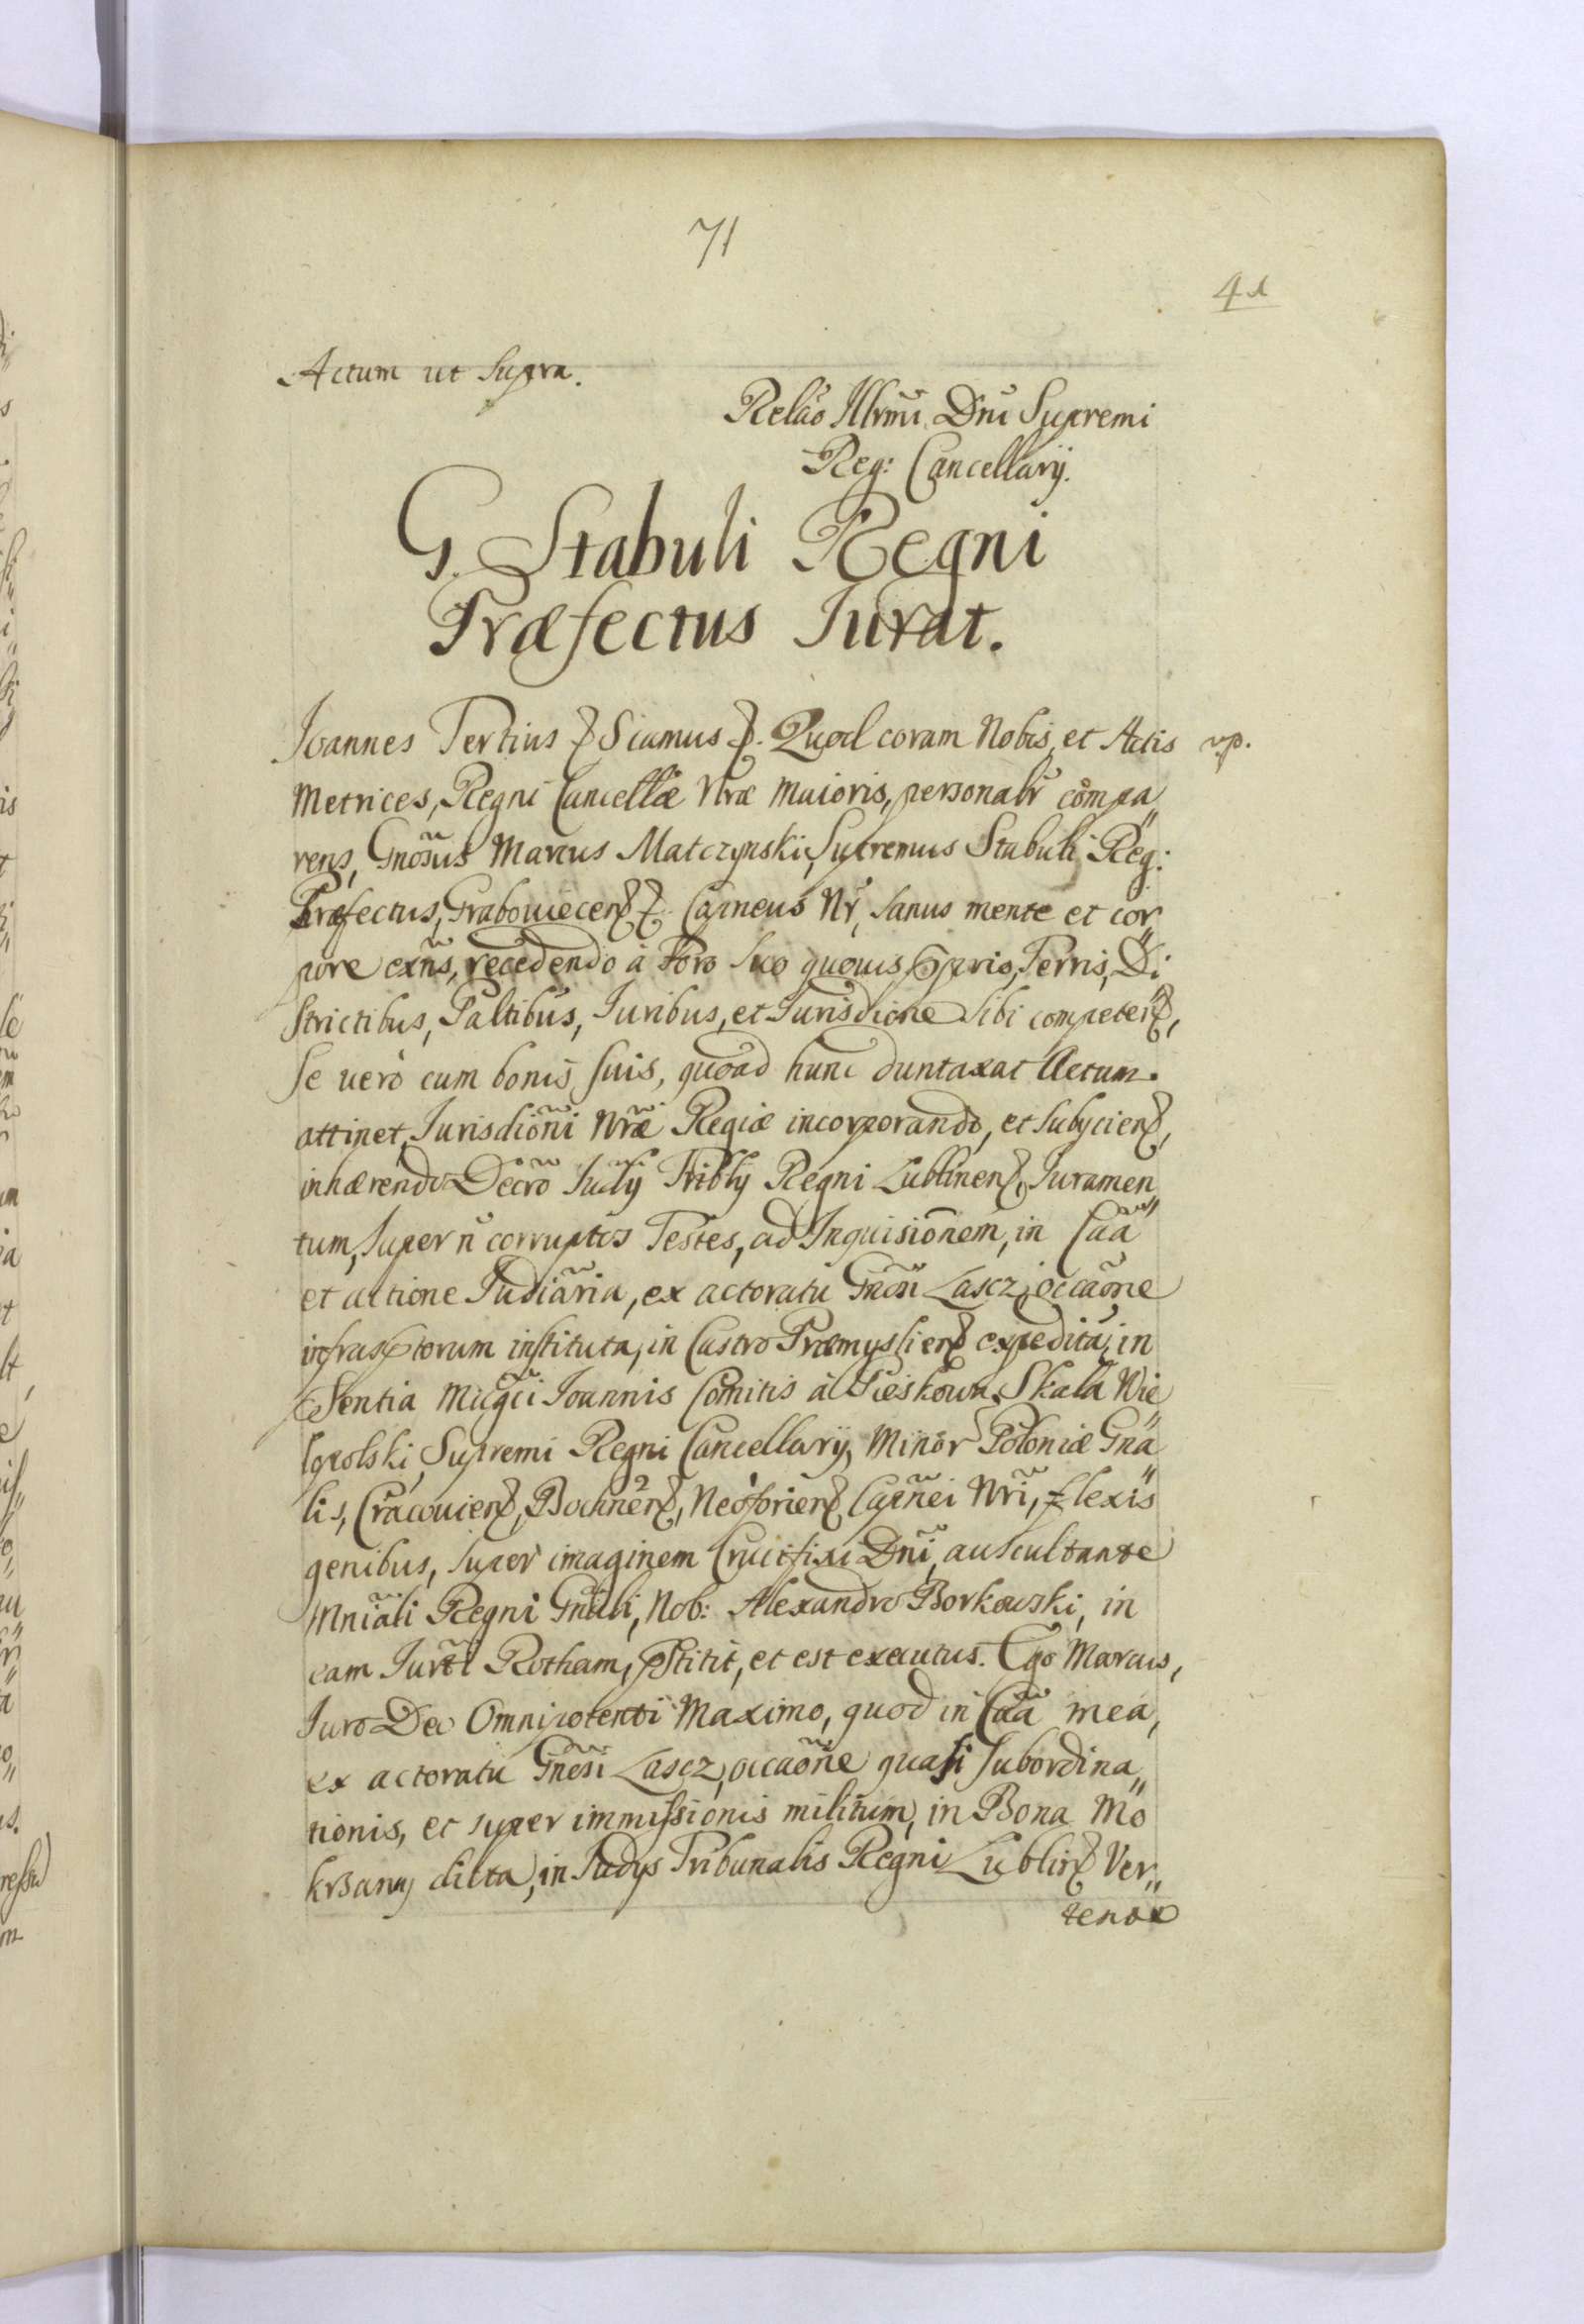 71
41
Actum ut supra.
Relão Illrmi Dni Supremi
Reg: Cancellarij.
G. Stabuli Regni
Præfectus Jurat.
Joannes Tertius & Sciamus &. Quod coram Nobis, et Actis
vp.
Metrices, Regni Cancellæ Nræ Maioris, personalr compa„
rens, Gnosus Marcus Matczynski, Supremus Stabuli Reg:
Præfectus, Grabowiecen & Capneus Nr, sanus mente et cor„
pore exñs, recedendo à Foro suo quouis ppris, Terris, Di„
strictibus, Paltibus, Juribus, et Jurisdione sibi competen,
se verò cum bonis suis, quoad hunc duntaxat Actum
attinet, Jurisdioni Nræ Regiæ incorporando, et subijcien,
inhærendo Decro Judij Triblij Regni Lublinen, Juramen„
tum, super ñ corruptos Testes, ad Inquisionem, in Caã
et actione Judiãria, ex actoratu Gnosi Lascz, occaõne
infrasptorum instituta, in Castro Præmyslien expedita, in
pSentia Mugci Joannis Comitis à Pieskowa Skala Wie„
lopolski, Supremi Regni Cancellarij, Minor Poloniæ Gna„
lis, Cracouien, Bochnen, Neoforien Capnei Nri, flexis
genibus, super imaginem Crucifixi Dni, auscultante
Mniãli Regni Gnãli, Nob: Alexandro Borkowski, in
eam Jurti Rotham, pstitit, et est executus. Ego Marcus,
Juro Deo Omnipotenti Maximo, quod in Caã mea,
ex actoratu Gnesi Lascz, occaõne quasi subordina„
tionis, et super immissionis militum, in Bona Mo
krzany dicta, in Judijs Tribunalis Regni Lublin Ver„
tenõe